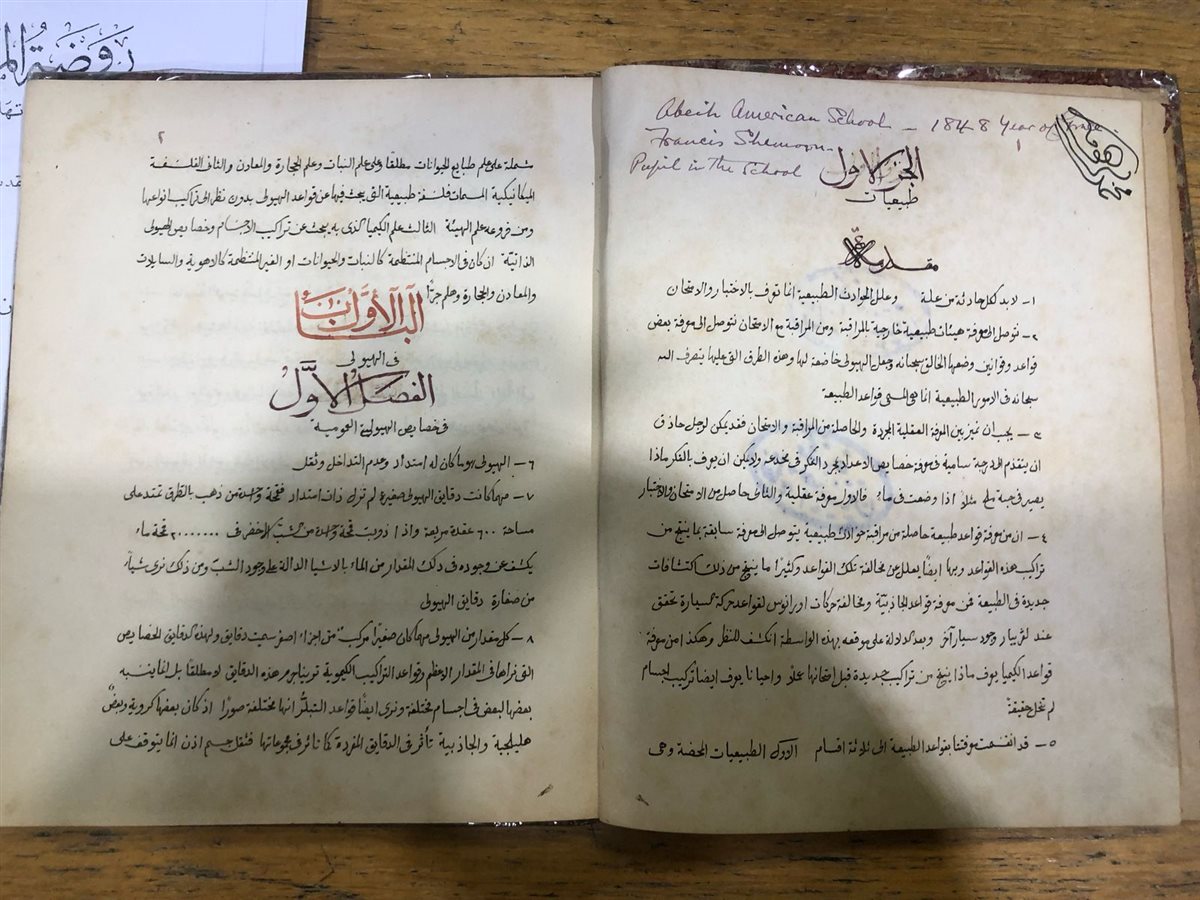 Abeih American School – 1848 Year of
Francis Shemoon
Pupil in the School
١
الجزء الاول
طبيعيات
مقدمة
١- لا بد لكل حادثة من علة وعلل الحوادث الطبيعية انما تعرف بالاختبار والامتحان
٢- نتوصل الى معرفة هيئات طبيعية خارجية بالمراقبة ومن المراقبة مع الامتحان نتوصل الى معرفة بعض
قواعد وقوانين وضعها الخالق سبحانه وجعل الهيولى خاضعة لها وهذه الطرق التي عليها يتصرف الله
سبحانه في الامور الطبيعية انما هي المسمى قواعد الطبيعة
٣- يجب ان نميز بين المعرفة العقلية المجردة والحاصلة من المراقبة والامتحان فقد يمكن لرجل حاذق
ان يتقدم الى درجة سامية في معرفة خصايص الاعداد بمجرد الفكر في مخدعه ولا يمكن ان يعرف بالفكر ماذا
يصير في حبة ملح مثلاً اذا وضعت في ماء فالاول معرفة عقلية والثاني حاصل من الامتحان والاختبار
٤- ان من معرفة قواعد طبيعة حاصلة من مراقبة حوادث طبيعية يتوصل الى معرفة سابقة بما ينتج من
تراكيب هذه القواعد وبها ايضًا يعلل عن مخالفة تلك القواعد وكثيرًا ما ينتج من ذلك اكتشافات
جديدة في الطبيعة فمن معرفة قواعد الجاذبية ومخالفة حركات اورانوس لقواعد حركة السيارة تحقق
عند لڤريار وجود سيار آخر وبعد الدلالة على موقعه بهذه الواسطة انكشف للنظر وهكذا من معرفة
قواعد الكيميا يعرف ماذا ينتج من تراكيب جديدة قبل امتحانها عملاً واحيانا يعرف ايضا تركيب اجسام
لم تحل حقيقةً
٥- قد انقسمت معرفتنا بقواعد الطبيعة الى ثلاثة اقسام الاول الطبيعيات المحضة وهي
٢
مشتملة على علم طبايع الحيوانات مطلقا وعلى علم النبات وعلم الحجارة والمعادن والثاني الفلسفة
الميكانيكية المسمات فلسفة طبيعية التي يبحث فيها عن قواعد الهيولى بدون نظر الى تراكيب انواعها
ومن فروعه علم الهيئة الثالث علم الكيميا الذي به يبحث عن تراكيب الاجسام وخصايص الهيولى
الذاتية ان كان في الاجسام المنتظمة كالنبات والحيوانات او الغير المنتظمة كالاهوية والسايلات
والمعادن والحجارة وهلم جرًا
الباب الأول
في الهيولى
الفصل الاول
في خصايص الهيولية العمومية
٦- الهيولى هو ما كان له امتداد وعدم التداخل وثقل
٧- مهما كانت دقايق الهيولى صغيرة لم تزل ذات امتداد فقمحة واحدة من ذهب بالطرق تمتد على
مساحة ٦٠٠ عقدة مربعة واذا ذوبت قمحة واحدة من الشب الاخضر في ٢٠٠٠٠٠٠٠ قمحة ماء
يكشف عن وجوده في ذلك المقدار من الماء بالاشيا الدالة على وجود الشب ومن ذلك نرى شيأً
من صغارة دقايق الهيولى
٨- كل مقدار من الهيولى مهما كان صغيرًا مركب من اجزاء اصغر سميت دقايق ولهذه الدقايق الخصايص
التي نراها في المقدار الاعظم وقواعد التراكيب الكيموية ترينا ثبوت هذه الدقايق لا مطلقًا بل بالنسبة
بعضها لبعض في اجسام مختلفة ونرى ايضًا قواعد التبلر انها مختلفة صورًا اذ كان بعضها كروية وبعضٌ
هليلجية والجاذبية تأثر في الدقايق المفردة كما تاثر في مجموعاتها فثقل جسم اذن انما يتوقف على